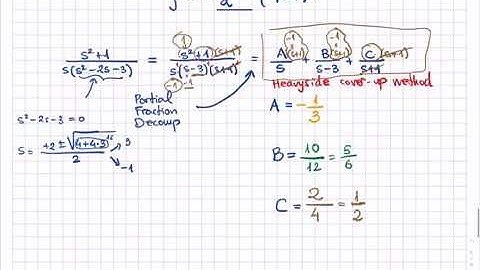 2
s²+1 / s(s²-2s-3) = s²+1 (s+1) / s(s-3)(s+1) = A(s+1)/s + B(s+1)/s-3 + C(s+1)/s+1
1
-1
-1
-1
-1
Heavyside cover-up method
Partial
Fraction
Decomp
A = -1/3
s²-2s-3=0
s = +2±√4+4·3 / 2
16
3
-1
B = 10/12 = 5/6
C = 2/4 = 1/2